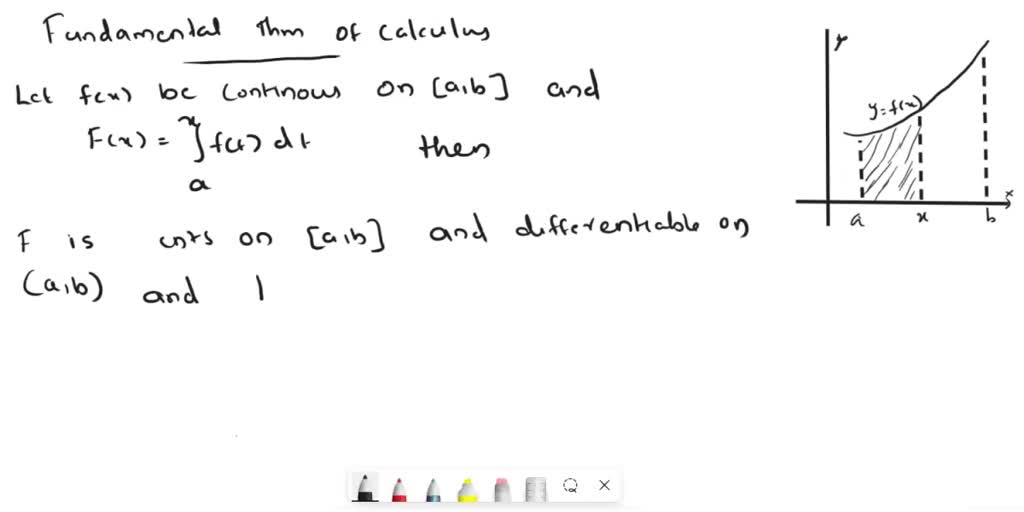 Fundamental thm of calculus
Let f(x) be continous on [a,b] and
F(x) = ∫ f(t) dt then
x
a
F is cnts on [a,b] and differentiable on
(a,b) and
y
y=f(x)
a x b
x